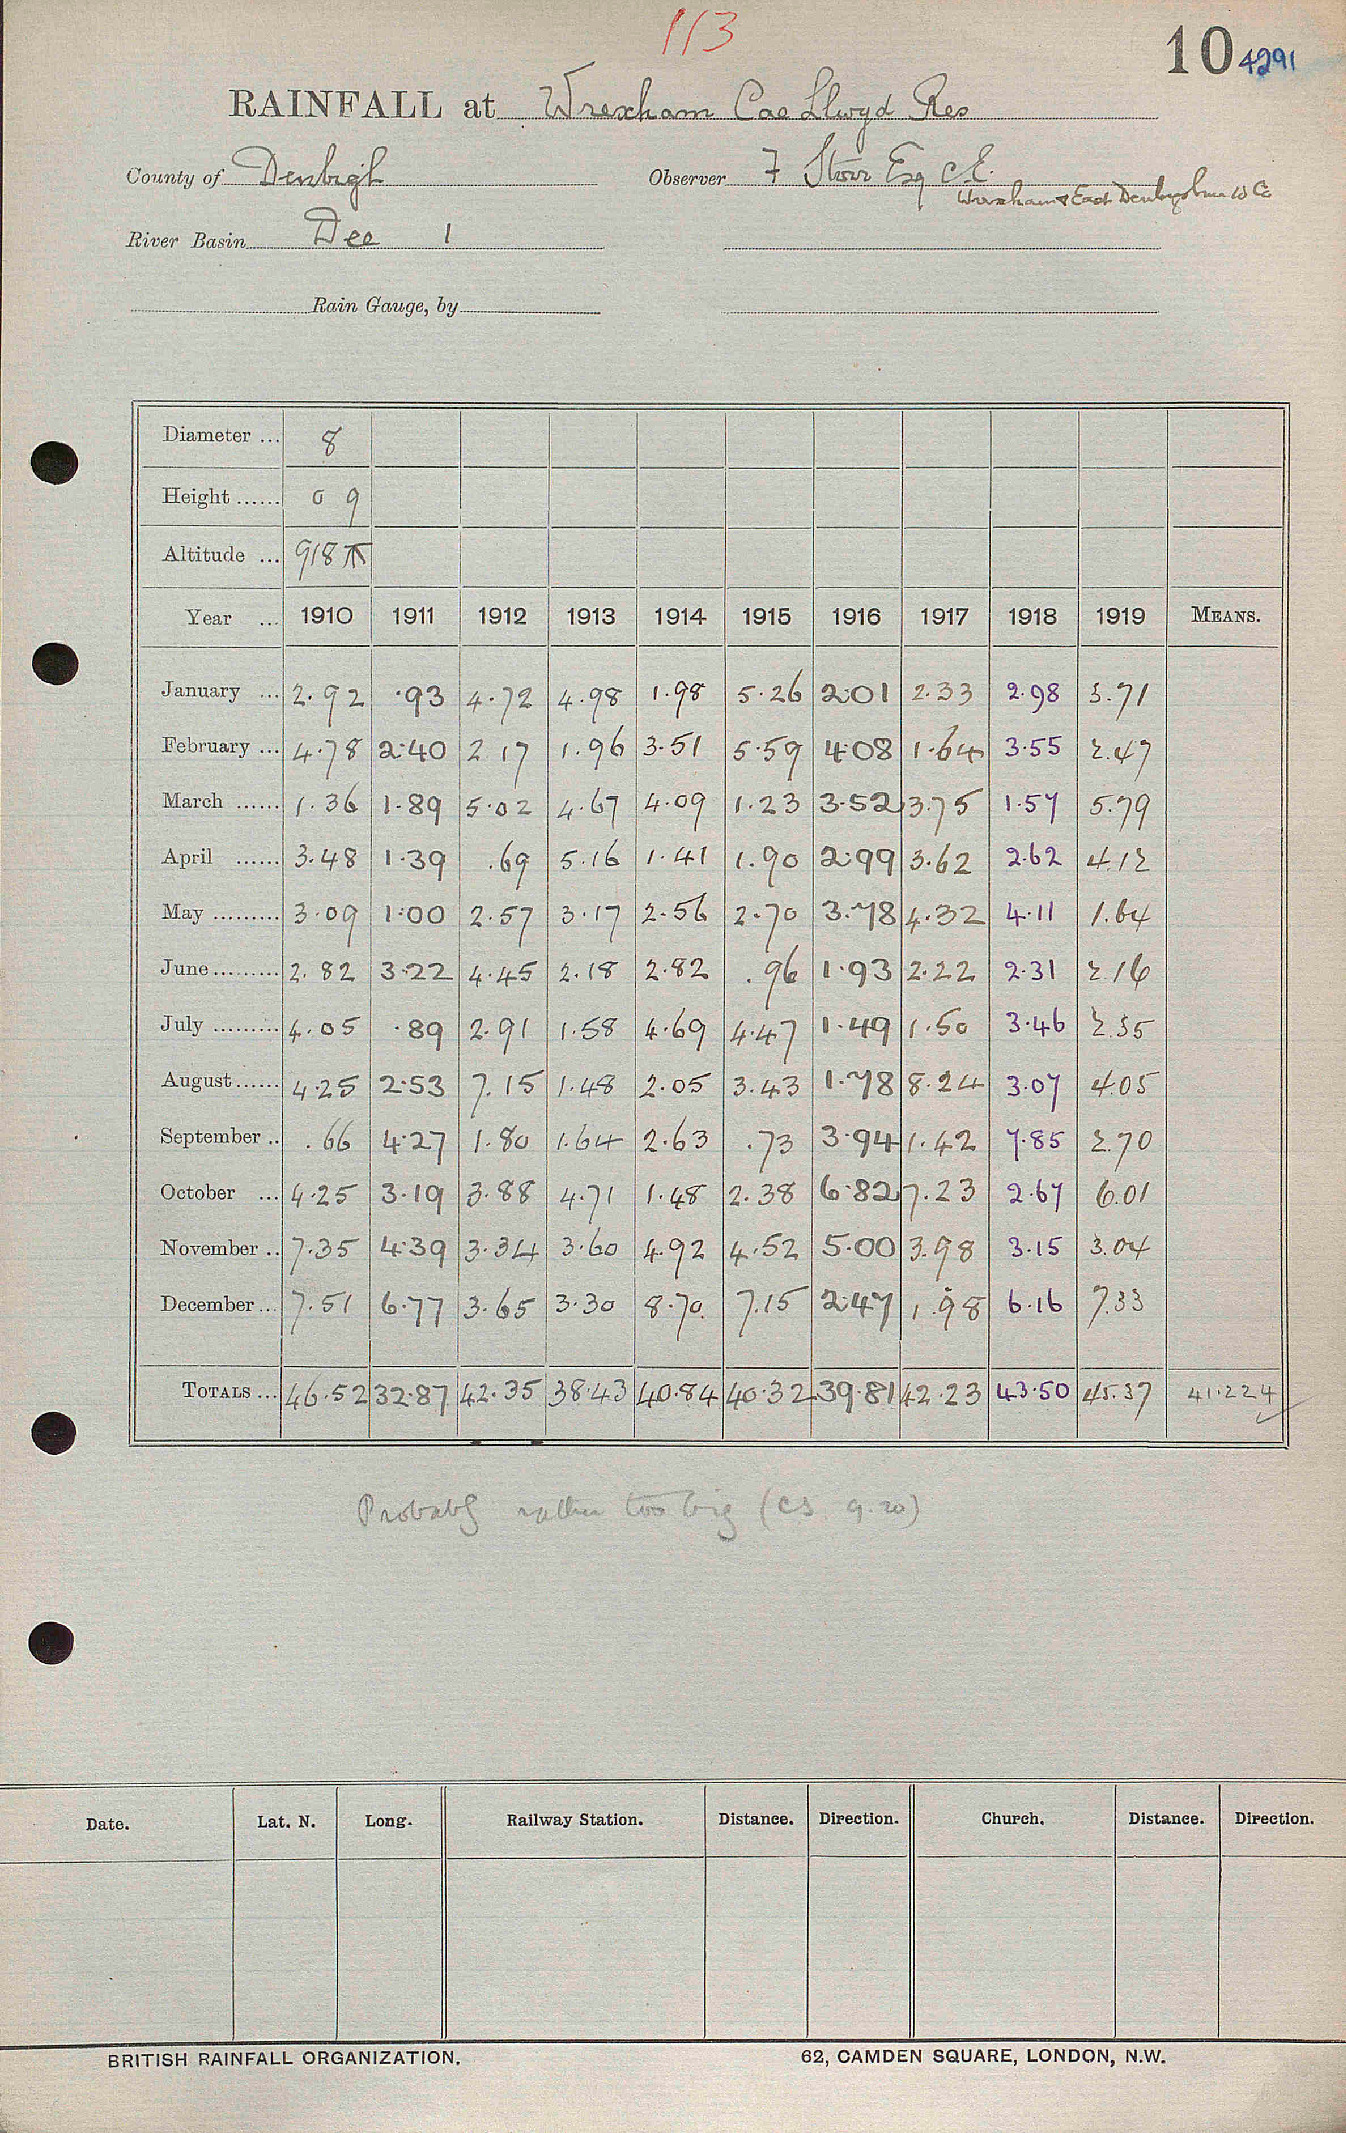 113
10 4291
RAINFALL at Wrexham Cae Llwyd Res
County of Denbigh Observer F Storr Esq C.E.
Wrexham & East Denbighshire W Co
River Basin Dee 1
Rain Gauge, by
Diameter ... 8
Height ...... 0 9
Altitude ... 918
Year ... 1910 1911 1912 1913 1914 1915 1916 1917 1918 1919 MEANS.
January ... 2.92 .93 4.72 4.98 1.98 5.26 2.01 2.33 2.98 3.71
February ... 4.78 2.40 2.17 1.96 3.51 5.59 4.08 1.64 3.55 2.47
March ...... 1.36 1.89 5.02 4.67 4.09 1.23 3.52 3.75 1.57 5.79
April ...... 3.48 1.39 .69 5.16 1.41 1.90 2.99 3.62 2.62 4.12
May ......... 3.09 1.00 2.57 3.17 2.56 2.70 3.78 4.32 4.11 1.64
June ......... 2.82 3.22 4.45 2.18 2.82 .96 1.93 2.22 2.31 2.16
July ......... 4.05 .89 2.91 1.58 4.69 4.47 1.49 1.50 3.46 2.35
August ...... 4.25 2.53 7.15 1.48 2.05 3.43 1.78 8.24 3.07 4.05
September .. .66 4.27 1.80 1.64 2.63 .73 3.94 1.42 7.85 2.70
October ... 4.25 3.19 3.88 4.71 1.48 2.38 6.82 7.23 2.67 6.01
November .. 7.35 4.39 3.34 3.60 4.92 4.52 5.00 3.98 3.15 3.04
December ... 7.51 6.77 3.65 3.30 8.70 7.15 2.47 1.98 6.16 7.33
TOTALS ... 46.52 32.87 42.35 38.43 40.84 40.32 39.81 42.23 43.50 45.37 41.224
Probably rather too big (CS 9.20)
Date. Lat. N. Long. Railway Station. Distance. Direction. Church. Distance. Direction.
BRITISH RAINFALL ORGANIZATION. 62, CAMDEN SQUARE, LONDON, N.W.